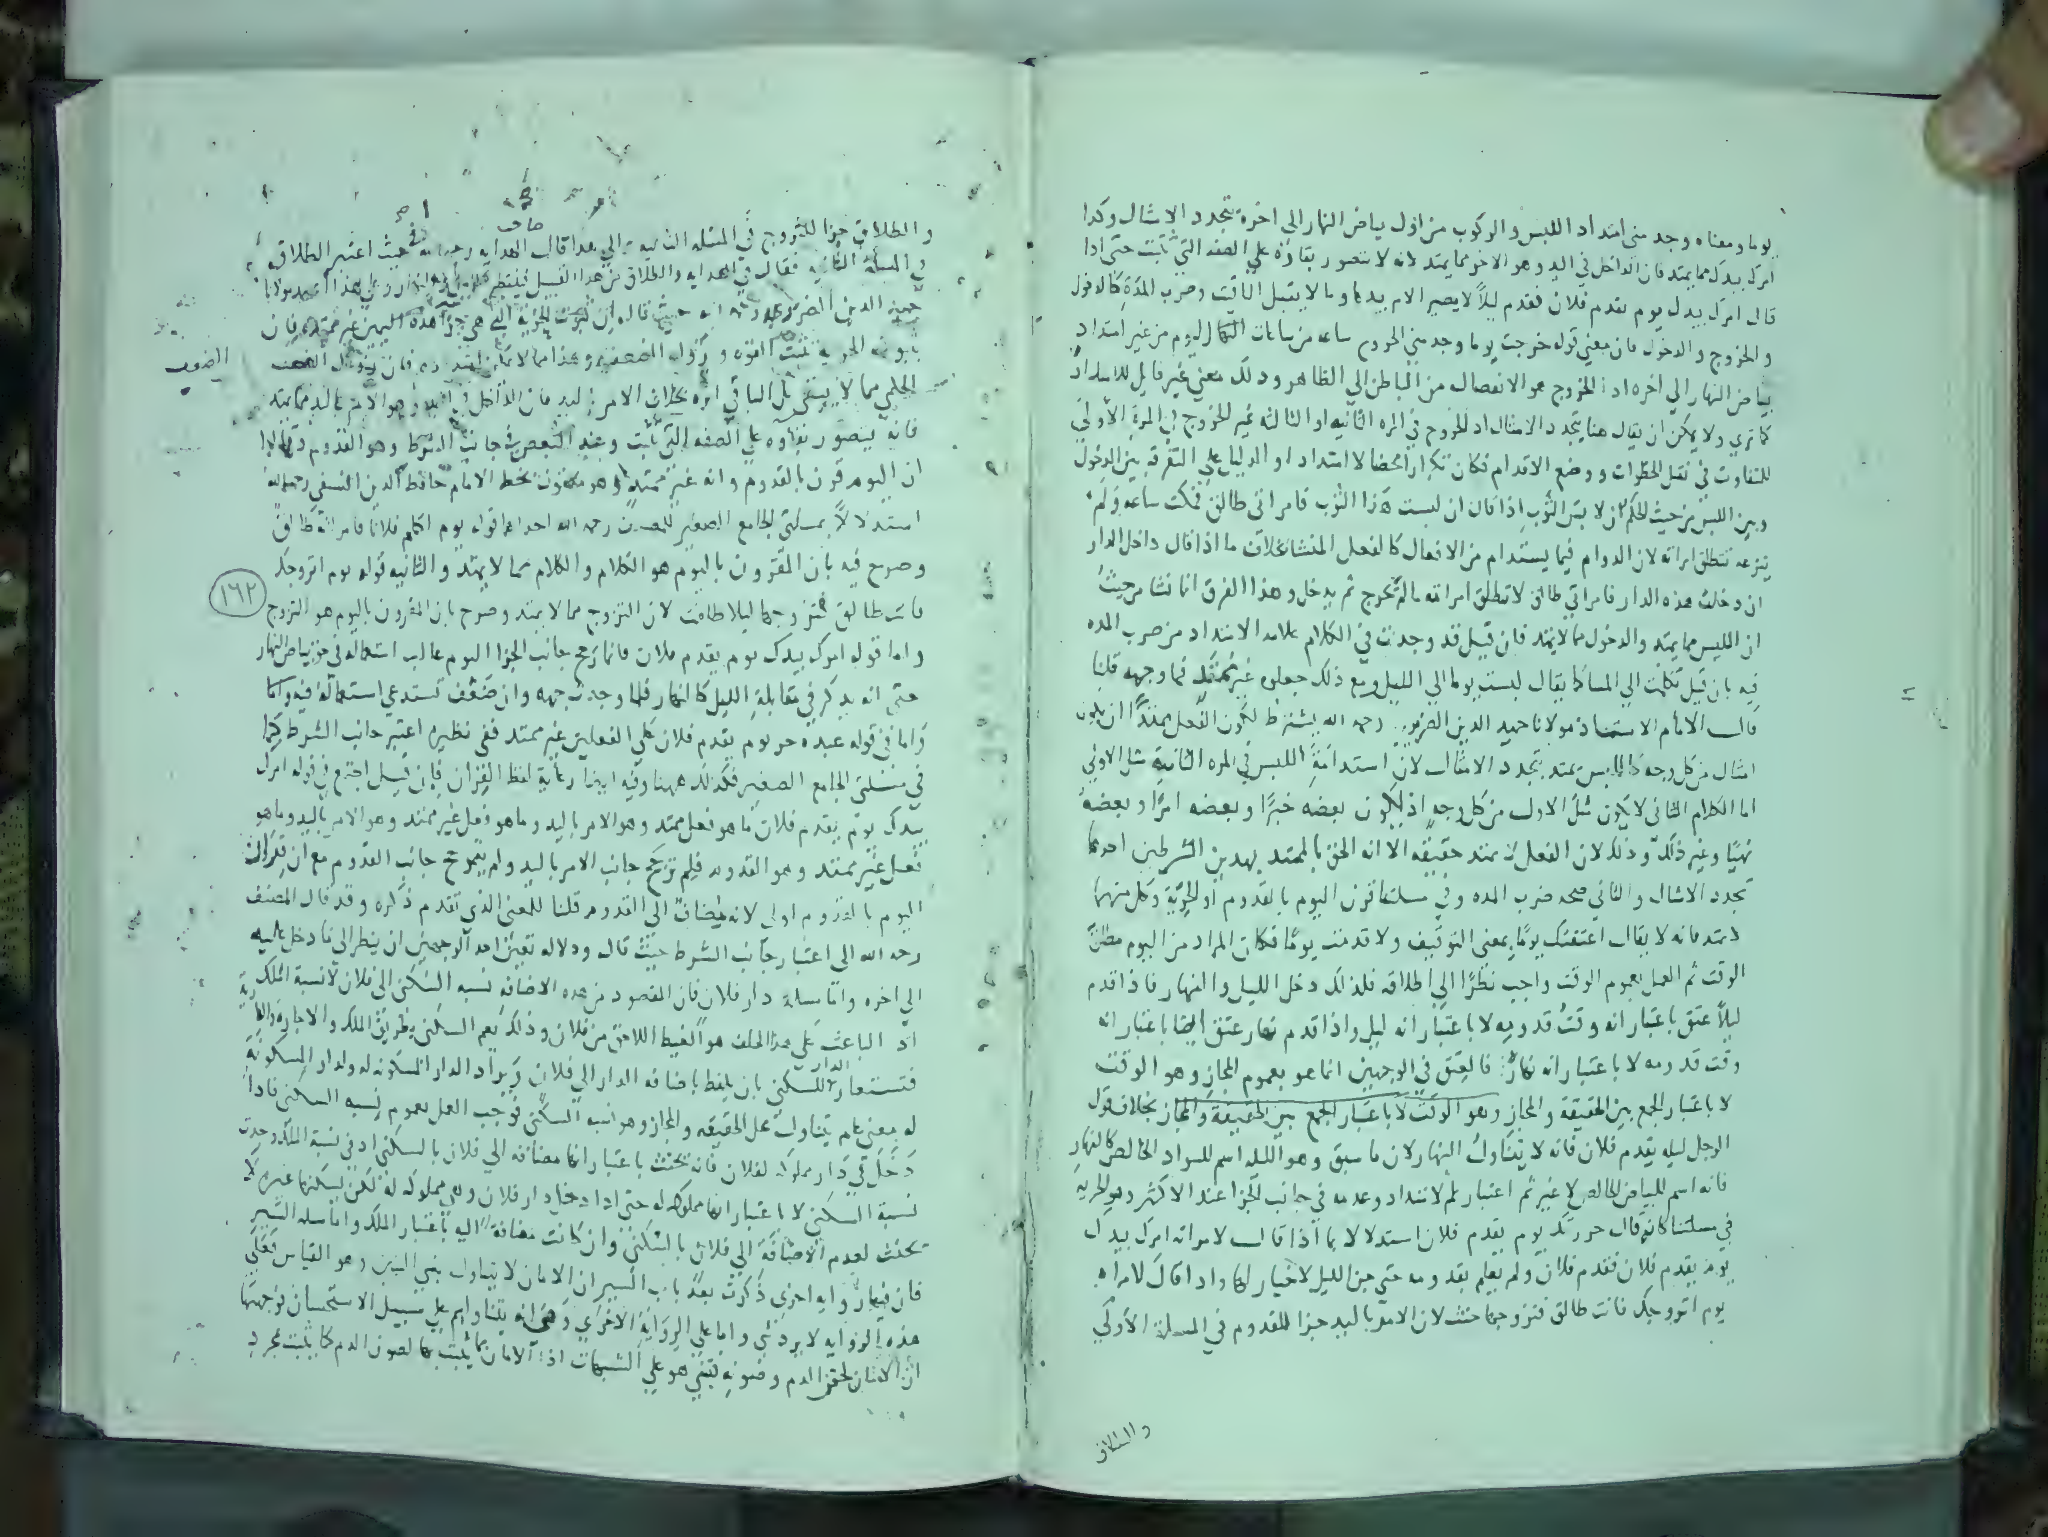 يوما ومعناه وجد مني امتداد اللبس والركوب من اول بياض النهار الى اخره بتجدد الامثال وكذا
امرك بيدك مما يمتد فان الداخل في اليد وهو الامر مما يمتد لانه لا يتصور بقاؤه على الصفة التي ثبتت حتى اذا
قال امرك بيدك يوم يقدم فلان فقدم ليلا لا يصير الامر بيدها وما لا يقبل التاقيت وضرب المدة كالدخول
والخروج والدخول فان معنى قوله خرجت يوما وجد مني الخروج ساعة من ساعات اليوم من غير امتداد
بياض النهار الى اخره اذ الخروج هو الانفصال من الباطن الى الظاهر وذلك معنى غير قابل للامتداد
كما ترى ولا يمكن ان يقال هنا بتجدد الامثال اذ الخروج في المرة الثانية او الثالثة غير الخروج في المرة الاولى
للتفاوت في نقل الخطوات ووضع الاقدام فكان تكرارا محضا لا امتداد او الدليل على التفرقة بين الدخول
وبين اللبس من حيث الحكم ان لابس الثوب اذا قال ان لبست هذا الثوب فامراتي طالق فمكث ساعة ولم
ينزعه تطلق امراته لان الدوام فيما يستدام من الافعال كالفعل المنشا بخلاف ما اذا قال داخل الدار
ان دخلت هذه الدار فامراتي طالق لا تطلق امراته ما لم يخرج ثم يدخل وهذا الفرق انما نشا من حيث
ان اللبس مما يمتد والدخول مما لا يمتد فان قيل قد وجدت في الكلام علامة الامتداد من ضرب المدة
فيه بان قيل تكلمت الى المسا كما يقال لبست يوما الى الليل ومع ذلك جعلوه غير ممتد فما وجهه قلنا
قال الامام الاستاذ مولانا حميد الدين الضرير رحمه الله يشترط لكون الفعل ممتدا ان يكون
امثال من كل وجه كاللبس يمتد بتجدد الامثال لان استدامة اللبس في المرة الثانية مثل الاولى
اما الكلام الثاني لا يكون مثل الاول من كل وجه اذ يكون بعضه خبرا وبعضه امرا وبعضه
نهيا وغير ذلك وذلك لان الفعل لا يمتد حقيقة الا انه الحق بالممتد بهذين الشرطين احدهما
تجدد الامثال والثاني صحة ضرب المدة وفي مسلتنا قرن اليوم بالقدوم او الحرية وكل منهما
لا يمتد فانه لا يقال اعتقتك يوما بمعنى التوقيت ولا قدمت يوما فكان المراد من اليوم مطلق
الوقت ثم العمل بعموم الوقت واجب نظرا الى اطلاقه فلذلك دخل الليل والنهار فاذا قدم
ليلا عتق باعتبار انه وقت قدومه لا باعتبار انه ليل واذا قدم نهار عتق ايضا باعتبار انه
وقت قدومه لا باعتبار انه نهار فالعتق في الوجهين انما هو بعموم المجاز وهو الوقت
لا باعتبار الجمع بين الحقيقة والمجاز وهو الوقت لا باعتبار الجمع بين الحقيقة والمجاز بخلاف قول
الرجل ليلة يقدم فلان فانه لا يتناول النهار لان ما سبق وهو الليلة اسم للسواد الخالص كالنهار
فانه اسم للبياض الخالص لا غير ثم اعتبار الامتداد وعدمه في جانب الجزا عند الاكثر وهو الحرية
في مسلتنا كانه قال حررتك يوم يقدم فلان استدلالا بما اذا قال لامراته امرك بيدك
يوم يقدم فلان فقدم فلان ولم يعلم بقدومه حتى جن الليل لا خيار لها واذا قال لامراة
يوم اتزوجك فانت طالق فتزوجها حنث لان الامر باليد جزا للقدوم في المسلة الاولى
والطلاق
والطلاق جزا للتزوج في المسئلة الثانية والى هذا قال صاحب الهداية رحمه الله حيث اعتبر الطلاق
في المسالة الثانية فقال في الهداية والطلاق من هذا القبيل فينتظم الليل والنهار وعلى هذا مولانا
حميد الدين الضرير رحمه الله حيث قال ان ثبوت الحرية التي هي جزا هذه اليمين غير ممتد فان
بثبوت الحرية تثبت القوة ويزول الضعف وهذا مما لا يمكن امتداده فان زوال الضعف
الحكمي مما لا يبقى بل الباقي اثره بخلاف الامر باليد فان الداخل في اليد وهو الامر باليد مما يمتد
فانه يتصور بقاؤه على الصفة التي ثبتت وعند البعض في جانب الشرط وهو القدوم
ان اليوم قرن بالقدوم وانه غير ممتد وهو مكتوب بخط الامام حافظ الدين النسفي رحمه الله
استدلالا بمسلتي الجامع الصغير للمصنف رحمه الله احداهما قوله يوم اكلم فلانا فامراته طالق
وصرح فيه بان المقرون باليوم هو الكلام والكلام مما لا يمتد والثانية قوله يوم اتزوجك
فانت طالق فتزوجها ليلا طلقت لان التزوج مما لا يمتد وصرح بان المقرون باليوم هو التزوج
١٦٢
واما قوله امرك بيدك يوم يقدم فلان فانما رجح جانب الجزا اليوم غالب استعماله في بياض النهار
حتى انه يذكر في مقابلة الليل كالنهار فلما وجدت جهة وان ضعف تستدعي استعماله فيه
واما في قوله عبده حر يوم يقدم فلان كلي الفعلين غير ممتد ففي نظيره اعتبر جانب الشرط كما
في مسئلتي الجامع الصغير فكذلك ههنا وفيه ايضا رعاية لفظ القران فان قيل اجتمع في قوله امرك
بيدك يوم يقدم فلان ما هو فعل ممتد وهو الامر باليد وما هو فعل غير ممتد وهو الامر باليد وما هو
فعل غير ممتد وهو القدوم فلم ترجح جانب الامر باليد ولم يترجح جانب القدوم مع ان قران
اليوم بالقدوم اولى لانه مضاف الى القدوم قلنا للمعنى الذي تقدم ذكره وقد قال المصنف
رحمه الله الى اعتبار جانب الشرط حيث قال ودلالة تعين احد الوجهين ان ينظر الى ما دخل عليه
الى اخره واما مسلة دار فلان فان المقصود من هذه الاضافة نسبة السكنى الى فلان لا نسبة الملك
اذ الباعث على هذا الحلف هو الغيظ اللاحق من فلان وذلك يعم السكنى بطريق الملك والاجارة
فتستعار الدار للسكنى بان يلفظ باضافة الدار الى فلان ويراد الدار المسكونة له ولدار المسكونة
له معنى عام يتناول محل الحقيقة والمجاز وهو نسبة السكنى فوجب العمل بعموم نسبة السكنى فاذا
دخل في دار مملوكة لفلان فانه يحنث باعتبار انها مضافة الى فلان بالسكنى اذ في نسبة الملك وجدت
نسبة السكنى لا اعتبار انها مملوكة له حتى اذا دخل دار فلان وهي مملوكة له لكن يسكنها غيره لا
يحنث لعدم الاضافة الى فلان بالسكنى وان كانت مضافة اليه باعتبار الملك واما مسلة السير
فان فيها رواية اخرى ذكرت بعد باب السير ان الامان لا يتناول بني البنين وهو القياس فعلى
هذه الرواية لا يرد شي واما على الرواية الاخرى وهي انه يتناولهم على سبيل الاستحسان فوجهها
ان الامان لحقن الدم وصونه يبتني هو على الشبهات اذ الامان مما يثبت بها لصون الدم كما يثبت بمجرد